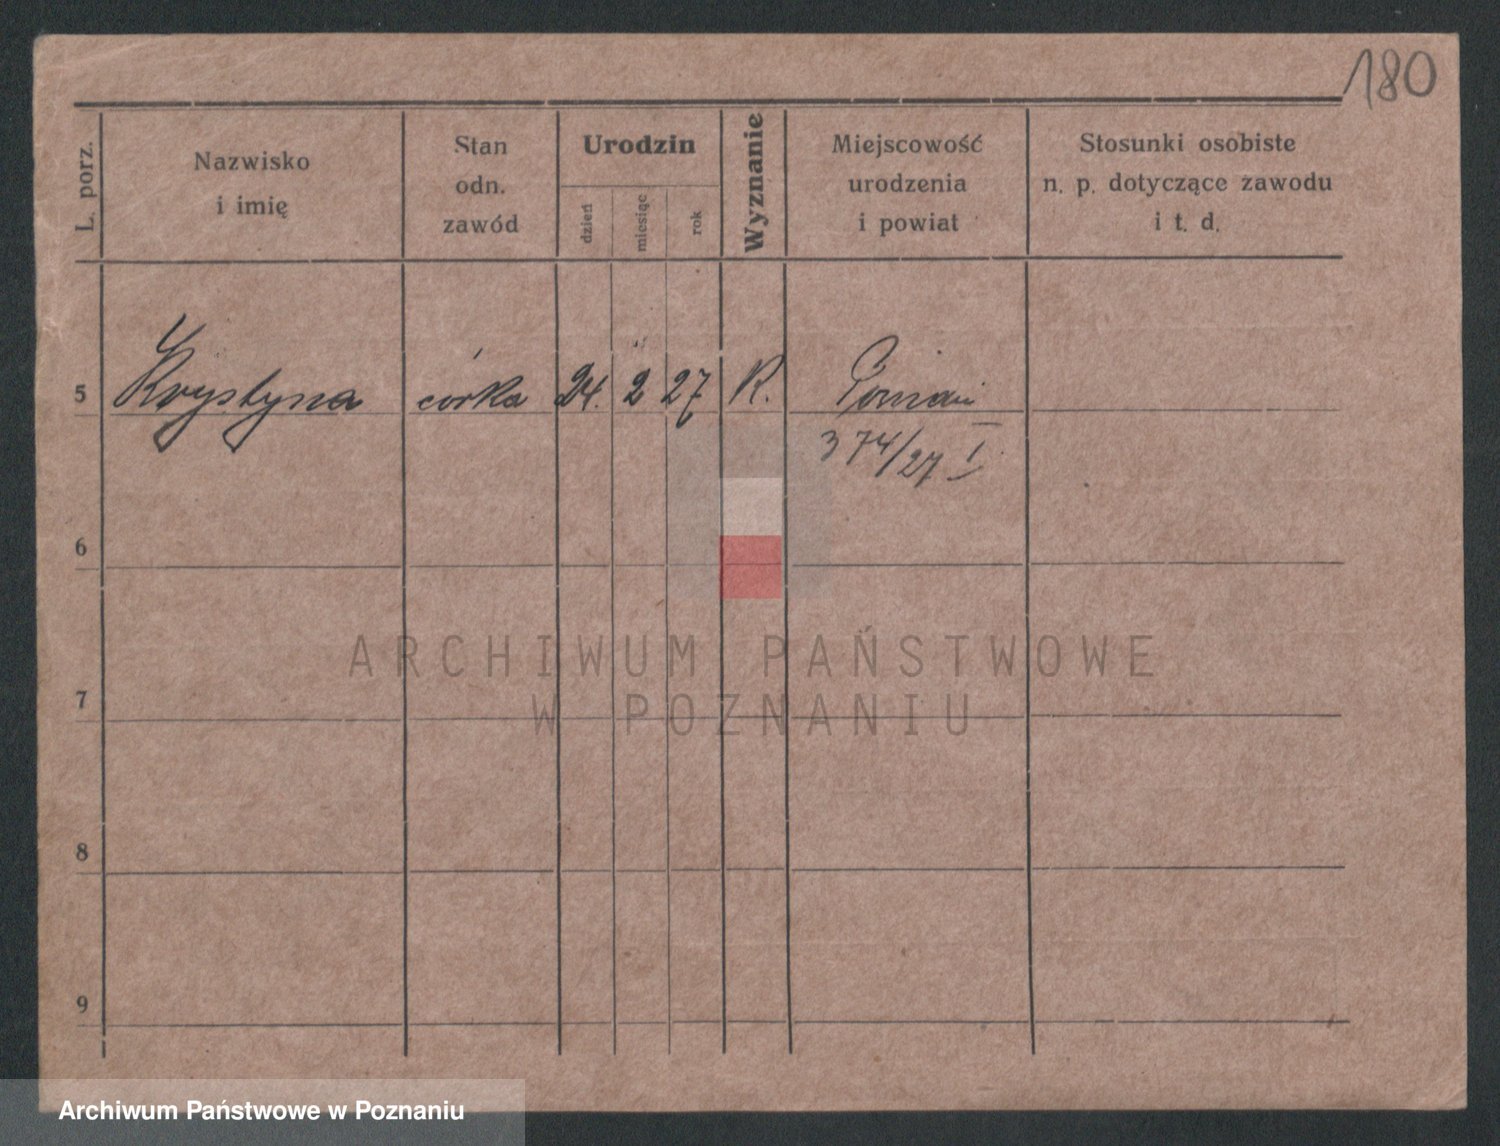 180
L. porz.
Nazwisko
i imię
Stan
odn.
zawód
Urodzin
dzień
miesiąc
rok
Wyznanie
Miejscowość
urodzenia
i powiat
Stosunki osobiste
n. p. dotyczące zawodu
i t. d.
5 Krystyna córka 24. 2 27 R. Poznań
374/27 I
6
ARCHIWUM PAŃSTWOWE
W POZNANIU
7
8
9
Archiwum Państwowe w Poznaniu